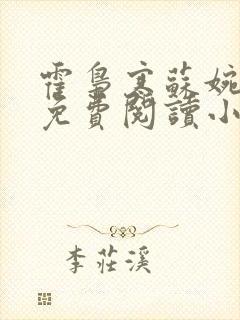 霍梟寒蘇婉
免費閱讀小
李莊溪